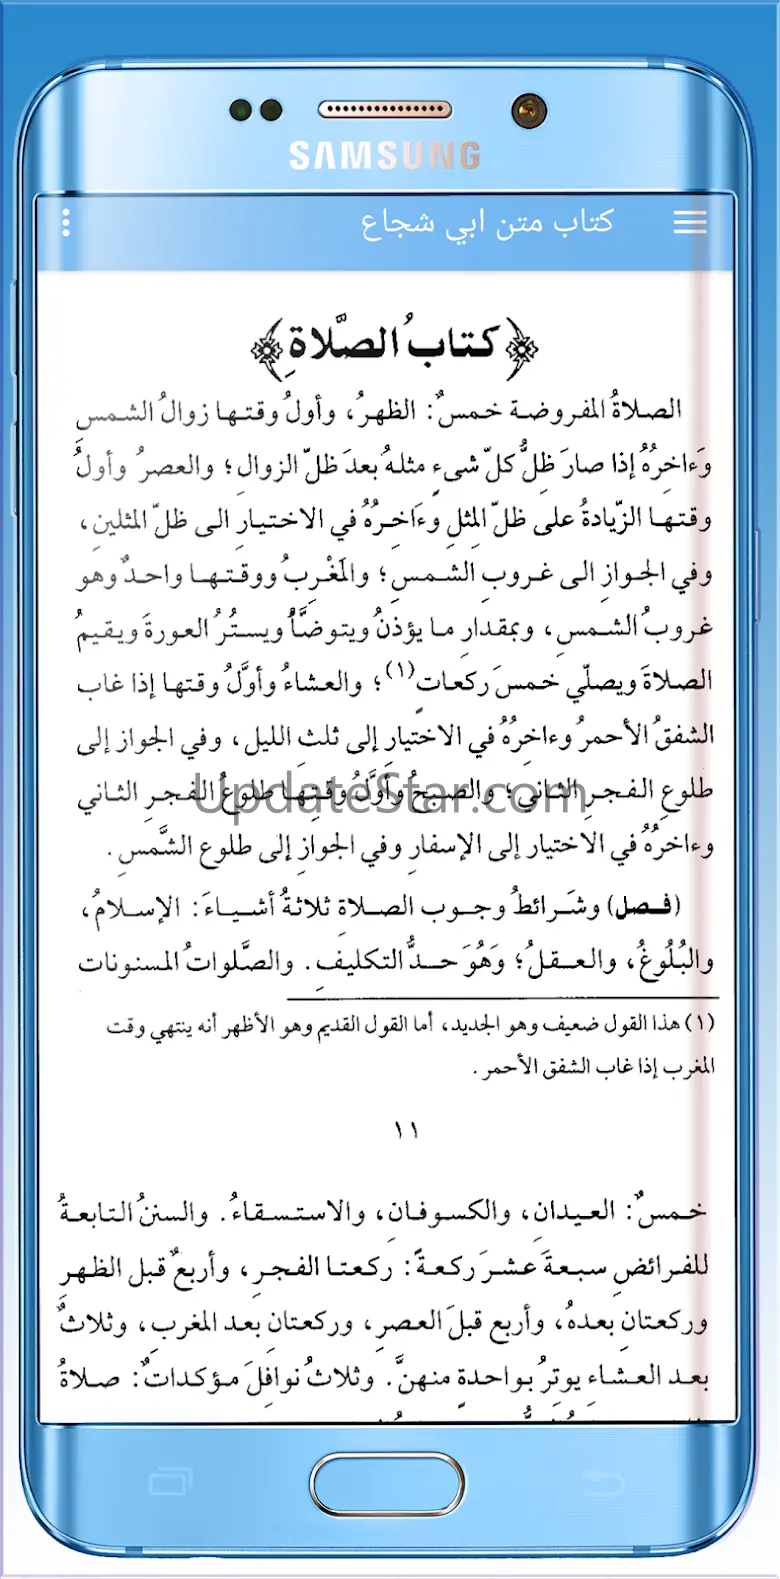 SAMSUNG
كتاب متن ابي شجاع
كتابُ الصَّلاةِ
الصلاةُ المفروضة خمسٌ: الظهرُ، وأولُ وقتها زوالُ الشمس
وَءاخِرُهُ إذا صارَ ظِلُّ كلّ شىءٍ مثلهُ بعدَ ظلّ الزوالِ؛ والعصرُ وأولُ
وقتها الزّيادةُ على ظلّ المِثلِ وَءَاخِرُهُ في الاختيارِ الى ظلّ المثلينِ،
وفي الجوازِ الى غروبِ الشمسِ؛ والمَغْرِبُ ووقتها واحدٌ وهو
غروبُ الشمسِ، وبمقدارِ ما يؤذنُ ويتوضَّأُ ويستُرُ العورةَ ويقيمُ
الصلاةَ ويصلّي خمسَ ركعاتٍ(١)؛ والعشاءُ وأوَّلُ وقتها إذا غاب
الشفقُ الأحمرُ وءاخِرُهُ في الاختيارِ إلى ثلثِ الليل، وفي الجواز إلى
طلوعِ الفجرِ الثاني؛ والصبحُ وأوَّلُ وقتِها طلوعُ الفجرِ الثاني
UpdateStar.com
وءاخرُهُ في الاختيار إلى الإسفارِ وفي الجوازِ إلى طلوع الشَّمسِ.
(فصل) وشَرائطُ وجوب الصلاةِ ثلاثةُ أشياءَ: الإسلامُ،
والبُلُوغُ، والعقلُ؛ وَهُوَ حدُّ التكليفِ. والصَّلواتُ المسنونات
(١) هذا القول ضعيف وهو الجديد، أما القول القديم وهو الأظهر أنه ينتهي وقت
المغرب إذا غاب الشفق الأحمر.
١١
خمسٌ: العيدانِ، والكسوفانِ، والاستسقاءُ. والسننُ التابعةُ
للفرائضِ سبعةَ عشرَ ركعةً: ركعتا الفجرِ، وأربعٌ قبل الظهرِ
وركعتانِ بعدهُ، وأربع قبلَ العصرِ، وركعتانِ بعد المغربِ، وثلاثٌ
بعد العشاءِ يوتِرُ بواحدةٍ منهنَّ. وثلاثُ نوافلَ مؤكداتٌ: صلاةُ